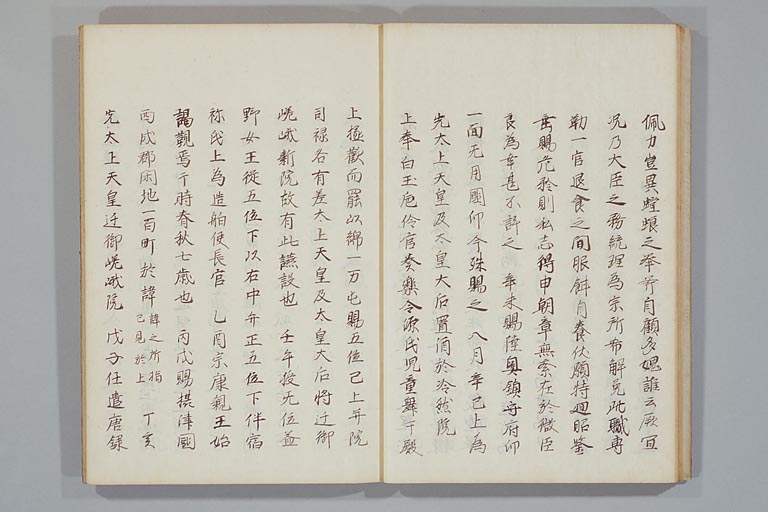 佩力豈異螳蜋之拳斧自顧多媿誰云厥宜
况乃大臣之務統理為宗所希解免此職專
勤一官退食之間服餌自養伏願特廻昭鑒
無賜危矜則私志得申朝章無紊在於微臣
良為幸甚不許之 辛未賜陸奥鎮守府印
一面无用國印今殊賜之 八月辛巳上為
先太上天皇及太皇大后置酒於冷然院
上奉白玉巵伶官奏樂令源氏児童舞于殿
上極歡而罷以綿一万屯賜五位已上并院
司禄各有差太上天皇及太皇大后将迁御
嵯峨新院故有此讌設也 壬午授无位益
野女王従五位下以右中弁正五位下伴宿
祢氏上為造舶使長官 乙酉宗康親王始
謁觀焉于時春秋七歳也 丙戌賜摂津國
西成郡閑地一百町於諱諱之所指已見於上 丁亥
先太上天皇迁御嵯峨院 戊子任遣唐録